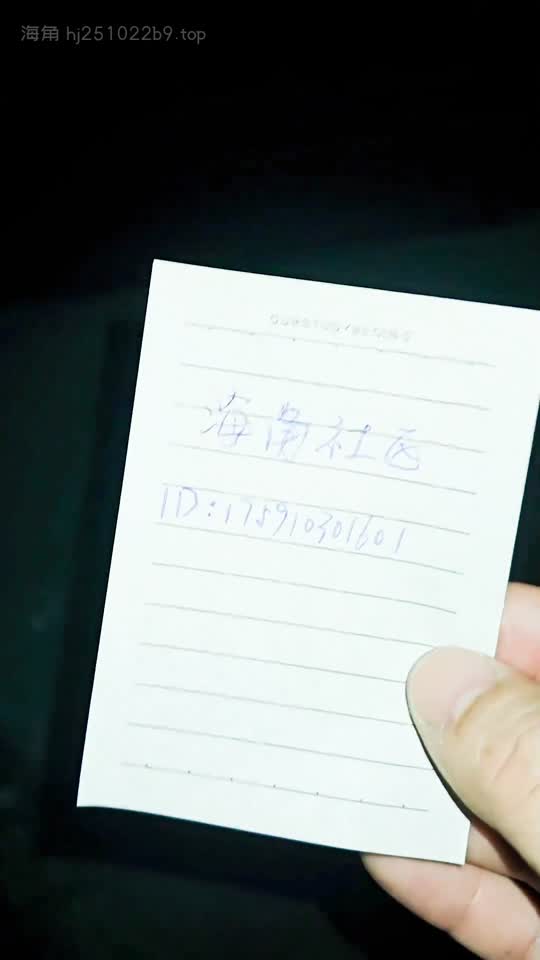 海角 hj251022b9.top
海角社区
ID:175910301601